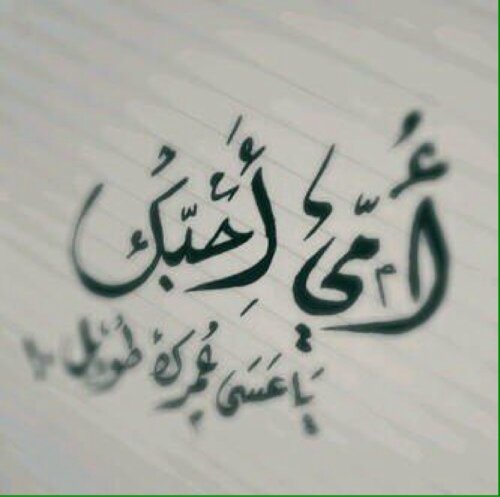 أُمّي أُحِبّك
يَا عَسَى عُمرك طَويل